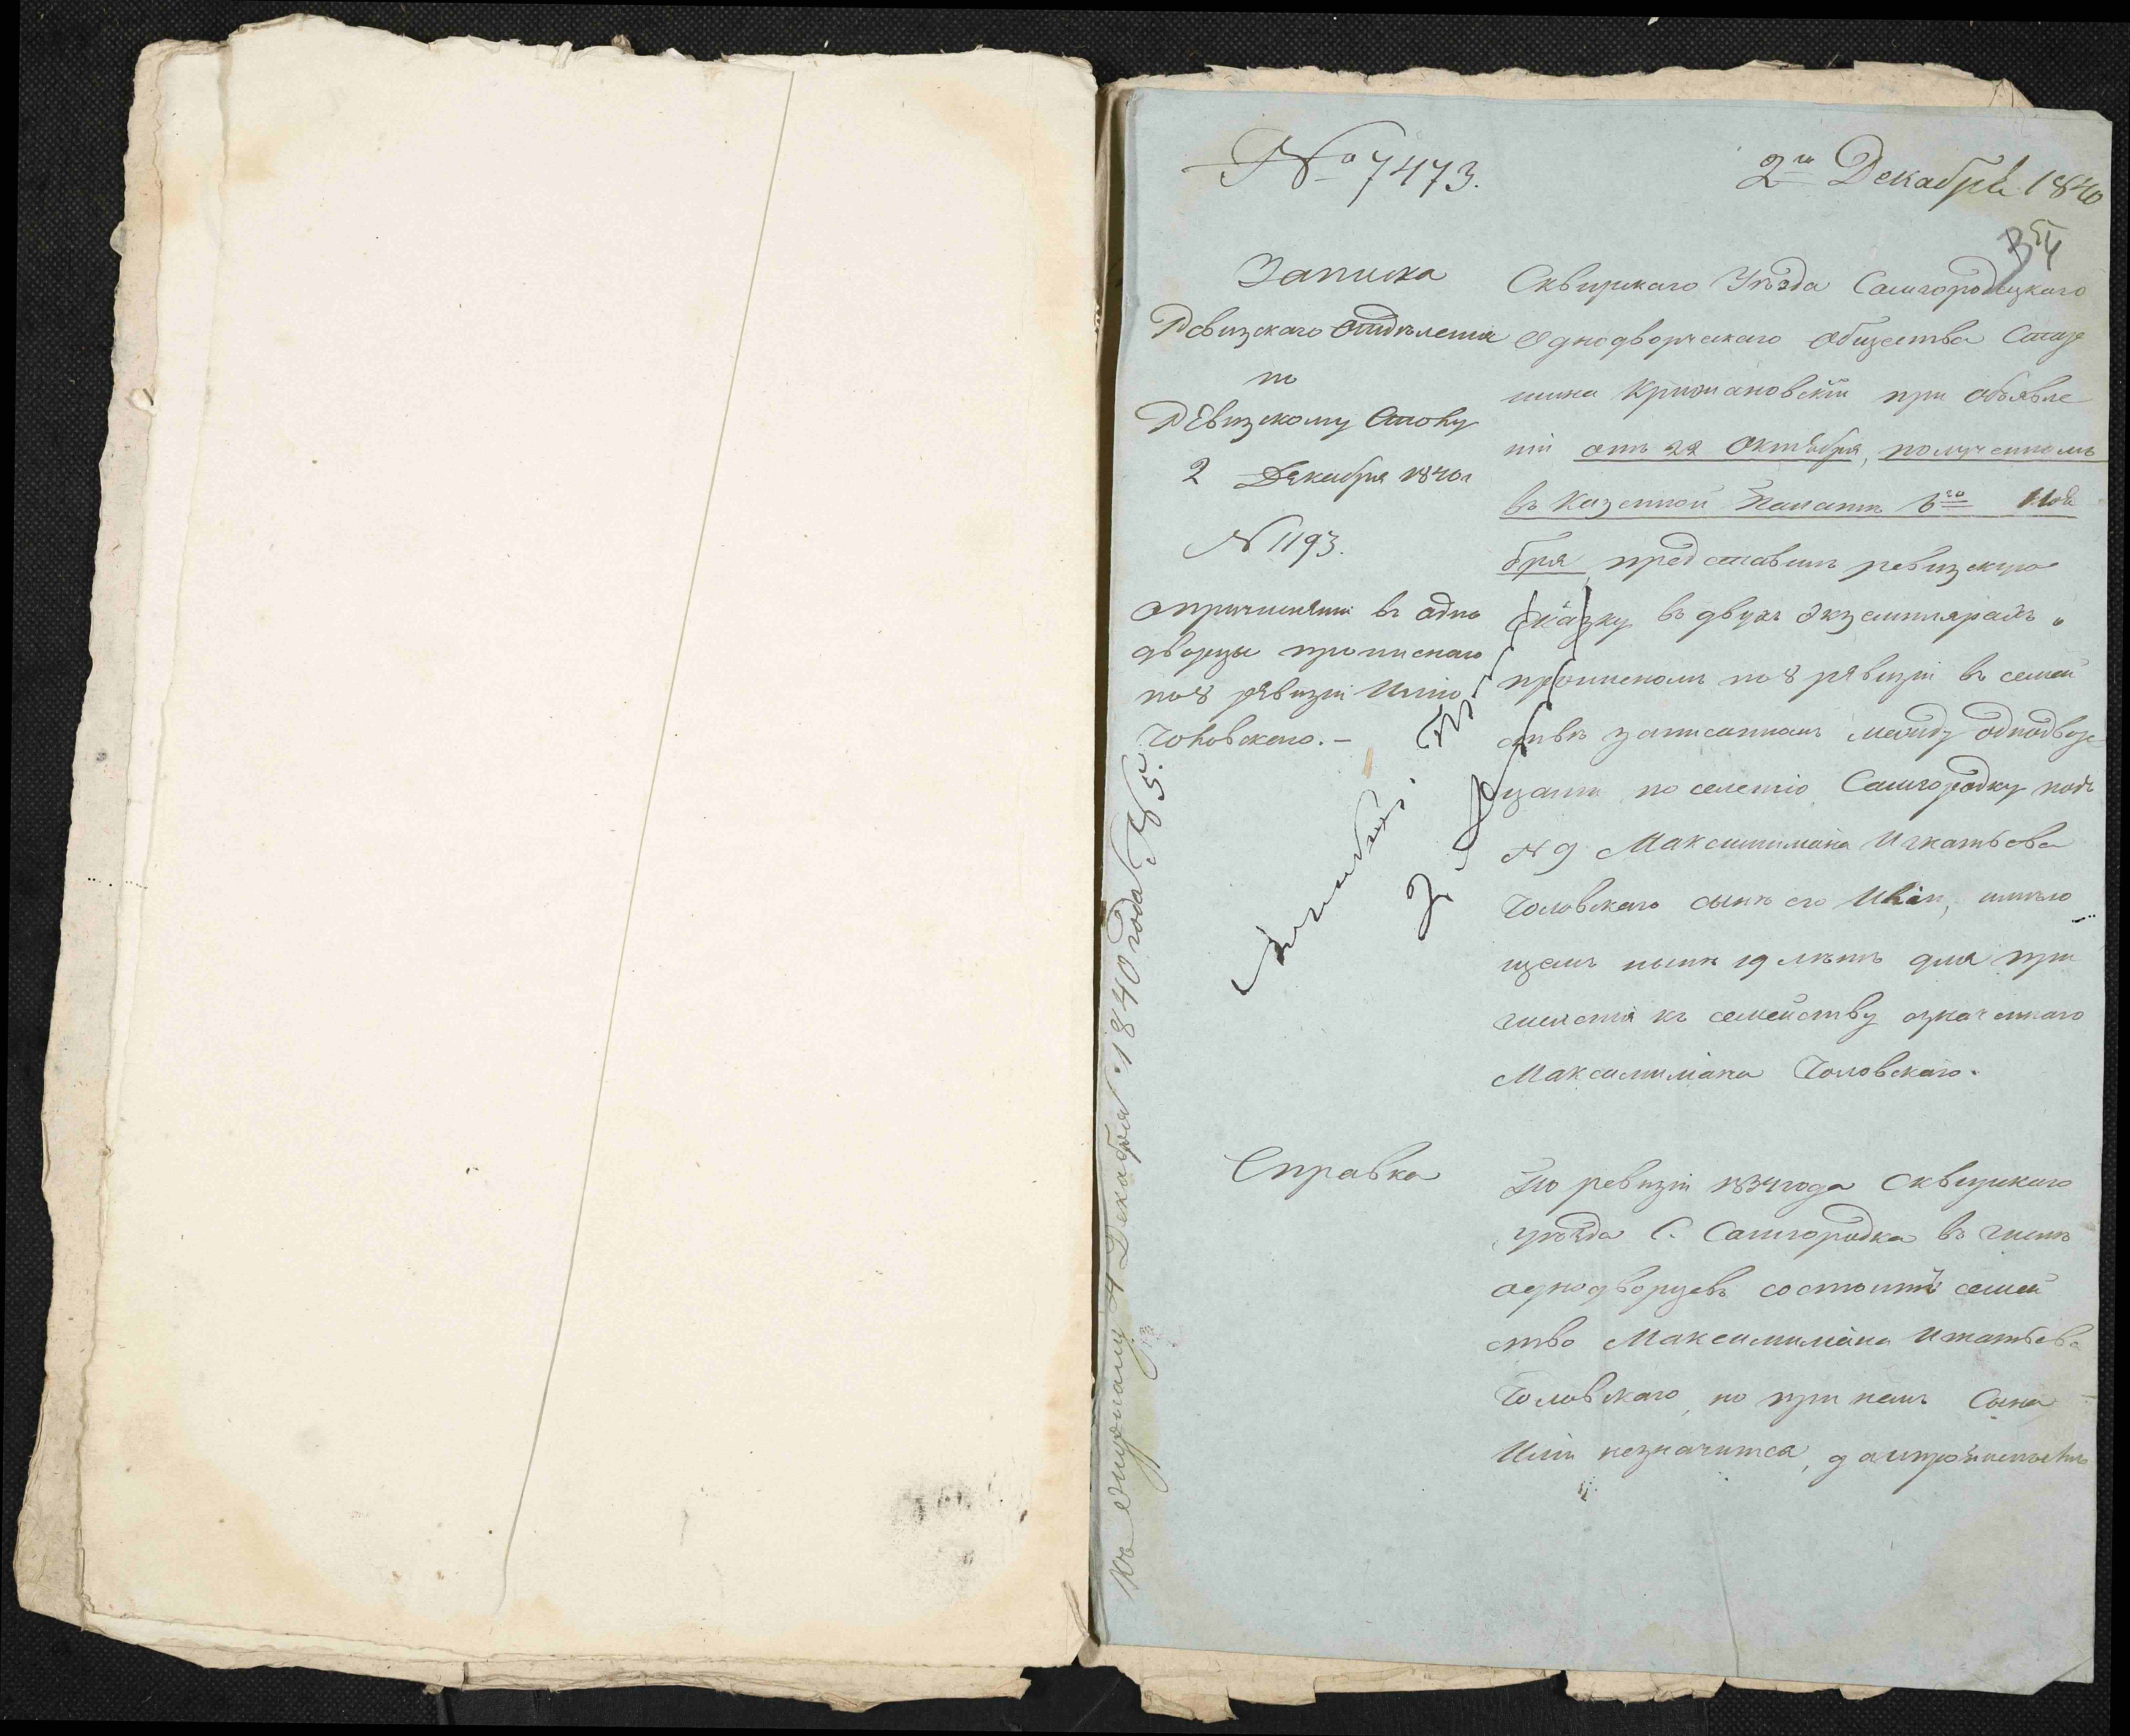 № 7473.
2го Декабря 1840
54
Записка
Ревизскаго отделенія
по
Ревизскому Столу
2 Декабря 1840 г
N 1193.
о причисленіи въ одно
дворцы прописнаго
по 8 ревизіи Иліи
Головскаго. –
Сквирскаго Уѣзда Самгородецкаго
Однодворческаго Общества Стар
шина Крыжановскій при объявле
ніи отъ 22 Октября, полученномъ
въ Казенной Палатѣ 6го Ноя
бря представилъ ревизскую
сказку въ двухъ экземплярахъ о
прописномъ по 8 ревизіи въ семей
ствѣ записанномъ между однодвор
цами по селенію Самгородку подъ
N 9 Максимиліана Игнатьева
Головскаго сынѣ его Иліи, имѣю
щемъ нынѣ 19 лѣтъ для при
численія къ семейству означеннаго
Максимиліана Головскаго.
Справка
По ревизіи 1834 года Сквирскаго
уѣзда С. Самгородка въ числѣ
однодворцевъ состоитъ семей
ство Максимиліана Игнатьева
Головскаго, но при немъ Сына
Иліи незначится,
4 Декабря 1840 года № 5.